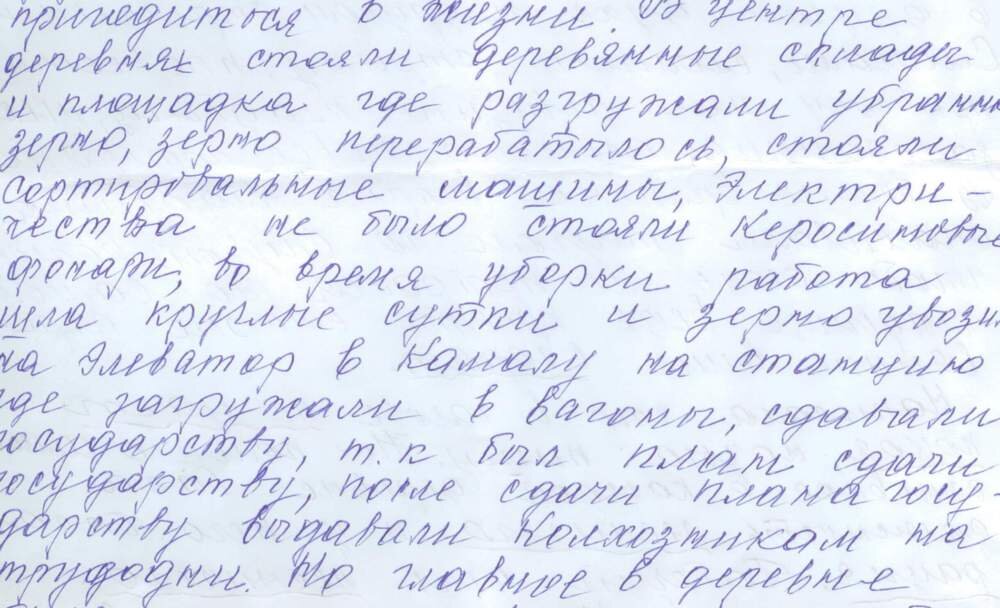 пригодиться в жизни. В центре
деревнях стояли деревянные склады
и площадка где разгружали убранн
зерно, зерно перерабатылось, стояли
сортировальные машины, Электри-
чества не было стояли Керосиновые
фонари, во время уборки работа
шла круглые сутки и зерно увози
на Элеватор в Камагу на станцию
где загружали в вагоны, сдавали
государству, т.к был план сдачи
государству, после сдачи плана госу-
дарству выдавали Колхозникам на
трудодни. Но главное в деревне